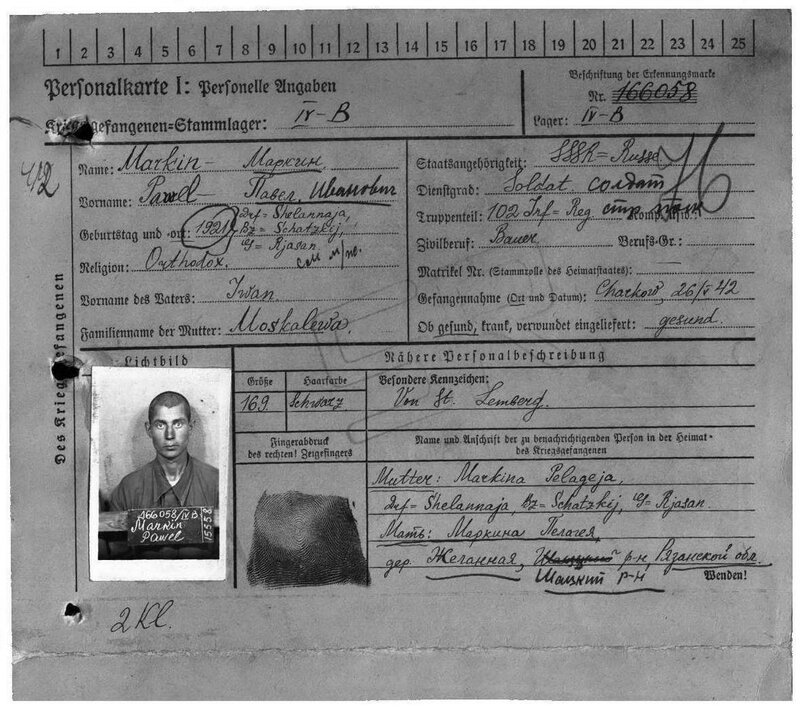 1 2 3 4 5 6 7 8 9 10 11 12 13 14 15 16 17 18 19 20 21 22 23 24 25
Personalkarte I: Personelle Angaben
Kriegsgefangenen=Stammlager: IV-B
Beschriftung der Erkennungsmarke
Nr. 166058
Lager: IV-B
Des Kriegsgefangenen
Name: Markin - Маркин
Vorname: Pawel - Павел, Иванович
Geburtstag und -ort: 1921 Drf= Shelannaja,
Bz= Schatzkij,
G= Rjasan.
Religion: Orthodox.
Vorname des Vaters: Iwan
Familienname der Mutter: Moskalewa.
Staatsangehörigkeit: SSSR= Russe
Dienstgrad: Soldat. солдат
Truppenteil: 102 Inf= Reg стр. полк
Zivilberuf: Bauer Berufs-Gr.:
Matrikel Nr. (Stammrolle des Heimatstaates):
Gefangennahme (Ort und Datum): Charkow, 26/V 42
Ob gesund, krank, verwundet eingeliefert: gesund.
76
Lichtbild
166058/IV B
Markin
Pawel
15558
Nähere Personalbeschreibung
Größe
169.
Haarfarbe
Schwarz
Besondere Kennzeichen:
Von St. Lemberg.
Fingerabdruck
des rechten! Zeigefingers
Name und Anschrift der zu benachrichtigenden Person in der Heimat-
des Kriegsgefangenen
Mutter: Markina Pelageja,
Drf= Shelannaja, Bz= Schatzkij, G= Rjasan.
Мать: Маркина Пелагея,
дер. Желанная, р-н, Рязанской обл.
Шацкий р-н
Wenden!
2Kl.